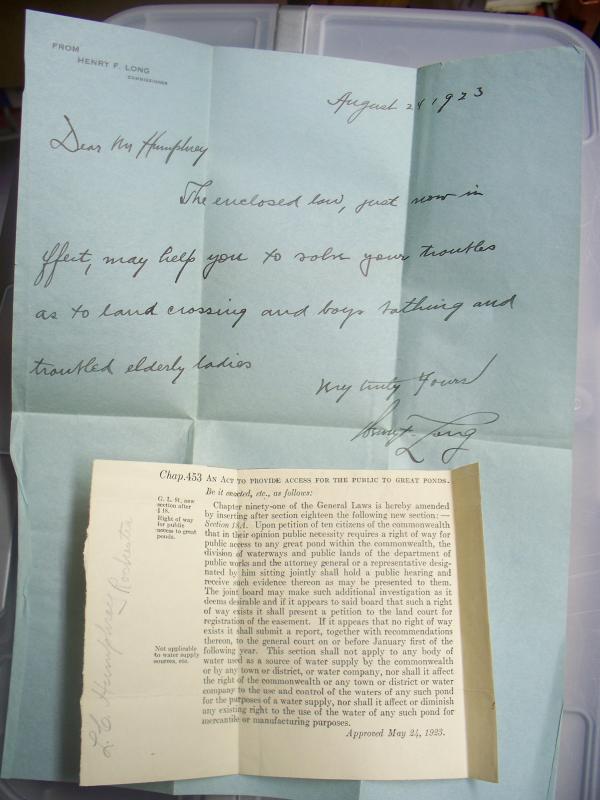 FROM
HENRY F. LONG
COMMISSIONER
August 28 1923
Dear Mr Humphrey
The enclosed law, just now in
ffect, may help you to solve your troubles
as to land crossing and boys bathing and
troubled elderly ladies
Very truly Yours
Henry F. Long
Chap.453 AN ACT TO PROVIDE ACCESS FOR THE PUBLIC TO GREAT PONDS.
Be it enacted, etc., as follows:
G. L. 91, new
section after
§ 18.
Right of way
for public
access to great
ponds.
Chapter ninety-one of the General Laws is hereby amended
by inserting after section eighteen the following new section: —
Section 18A. Upon petition of ten citizens of the commonwealth
that in their opinion public necessity requires a right of way for
public access to any great pond within the commonwealth, the
division of waterways and public lands of the department of
public works and the attorney general or a representative desig-
nated by him sitting jointly shall hold a public hearing and
receive such evidence thereon as may be presented to them.
The joint board may make such additional investigation as it
deems desirable and if it appears to said board that such a right
of way exists it shall present a petition to the land court for
registration of the easement. If it appears that no right of way
exists it shall submit a report, together with recommendations
thereon, to the general court on or before January first of the
following year. This section shall not apply to any body of
water used as a source of water supply by the commonwealth
or by any town or district, or water company, nor shall it affect
the right of the commonwealth or any town or district or water
company to the use and control of the waters of any such pond
for the purposes of a water supply, nor shall it affect or diminish
any existing right to the use of the water of any such pond for
mercantile or manufacturing purposes.
Not applicable
to water supply
sources, etc.
Approved May 24, 1923.
L. C. Humphrey Rochester